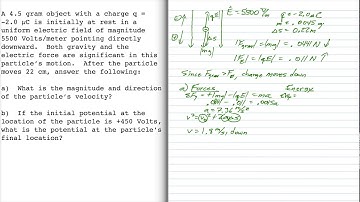 A 4.5 gram object with a charge q =
-2.0 µC is initially at rest in a
uniform electric field of magnitude
5500 Volts/meter pointing directly
downward. Both gravity and the
electric force are significant in this
particle's motion. After the particle
moves 22 cm, answer the following:
a) What is the magnitude and direction
of the particle's velocity?
b) If the initial potential at the
location of the particle is +450 Volts,
what is the potential at the particle's
final location?
E = 5500 V/m
q = -2.0µC
m = .0045 kg
Δs = 0.22m
|Fgrav| = |mg| = .0441 N ↓
|FE| = |qE| = .011 N ↑
Since Fgrav > FE, charge moves down
a) Forces
Energy
.0441 - .011 = .0045a
a = 7.36 m/s²
v = 1.8 m/s, down